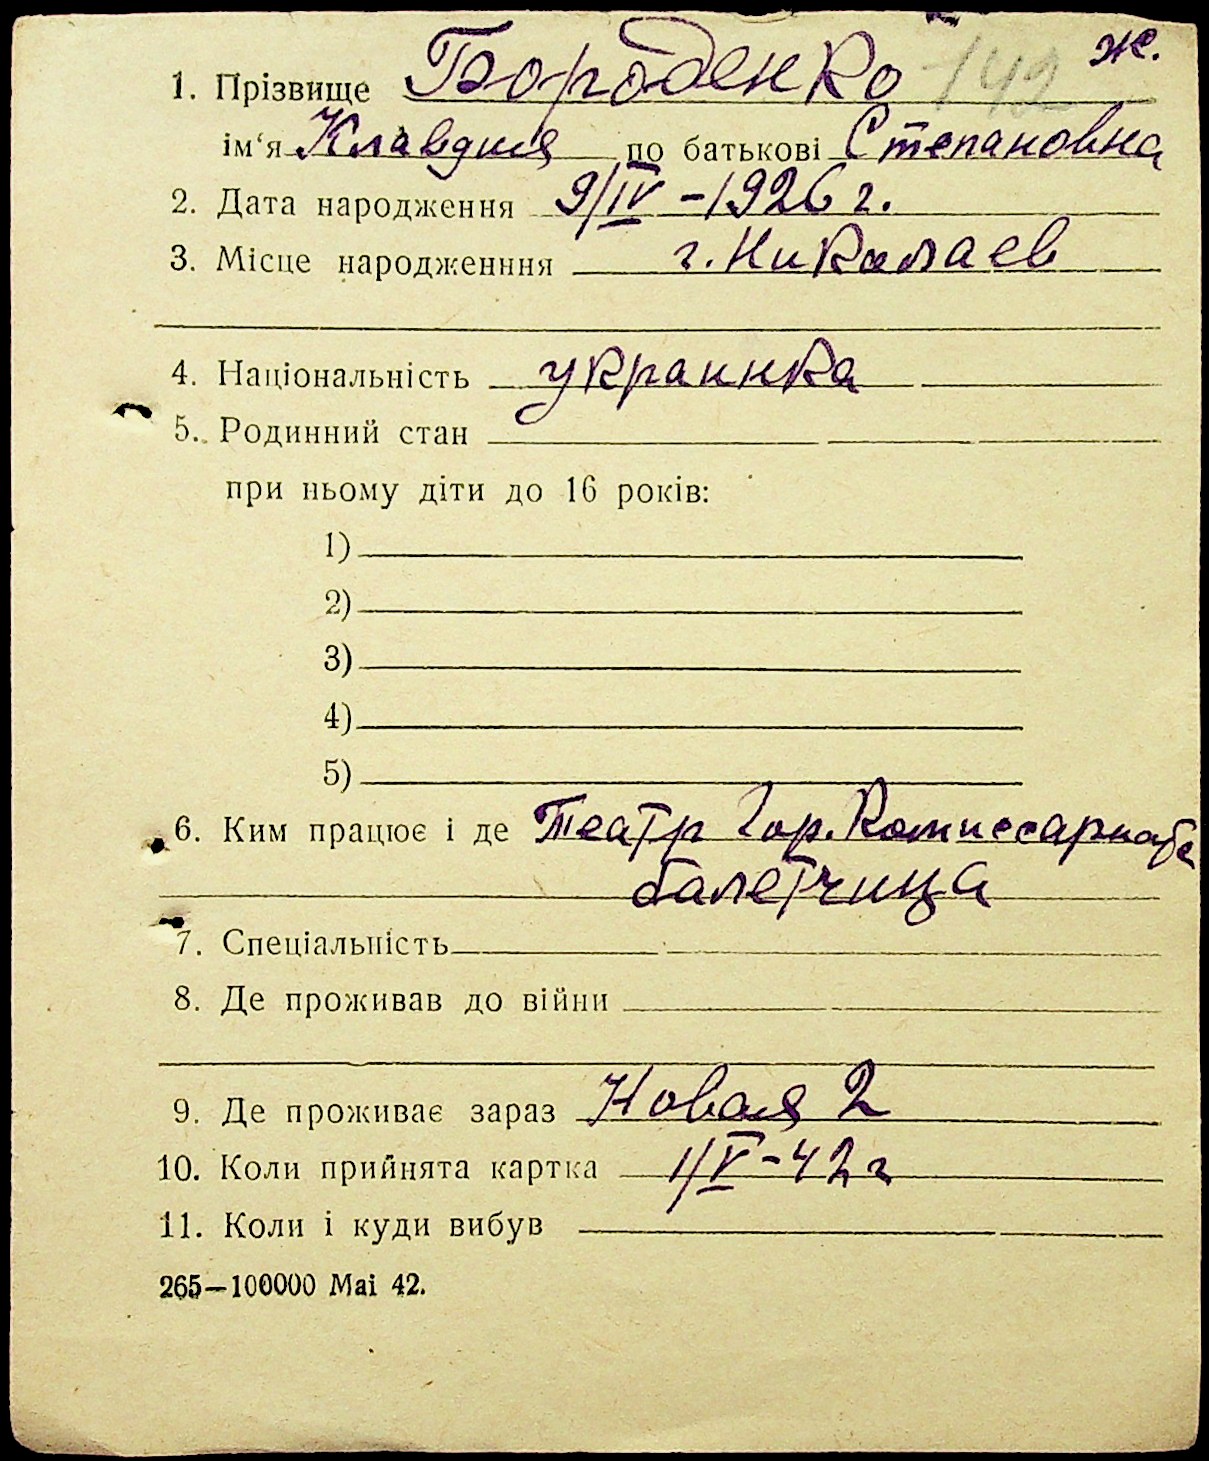 ж.
1. Прізвище Бороденко 142
ім'я Клавдия по батькові Степановна
2. Дата народження 9/IV-1926 г.
3. Місце народженння г. Николаев
4. Національність украинка
5. Родинний стан
при ньому діти до 16 років:
1)
2)
3)
4)
5)
6. Ким працює і де Театр Гор. Комиссариата
балетчица
7. Спеціальність
8. Де проживав до війни
9. Де проживає зараз Новая 2
10. Коли прийнята картка 1/V-42 г
11. Коли і куди вибув
265—100000 Mai 42.